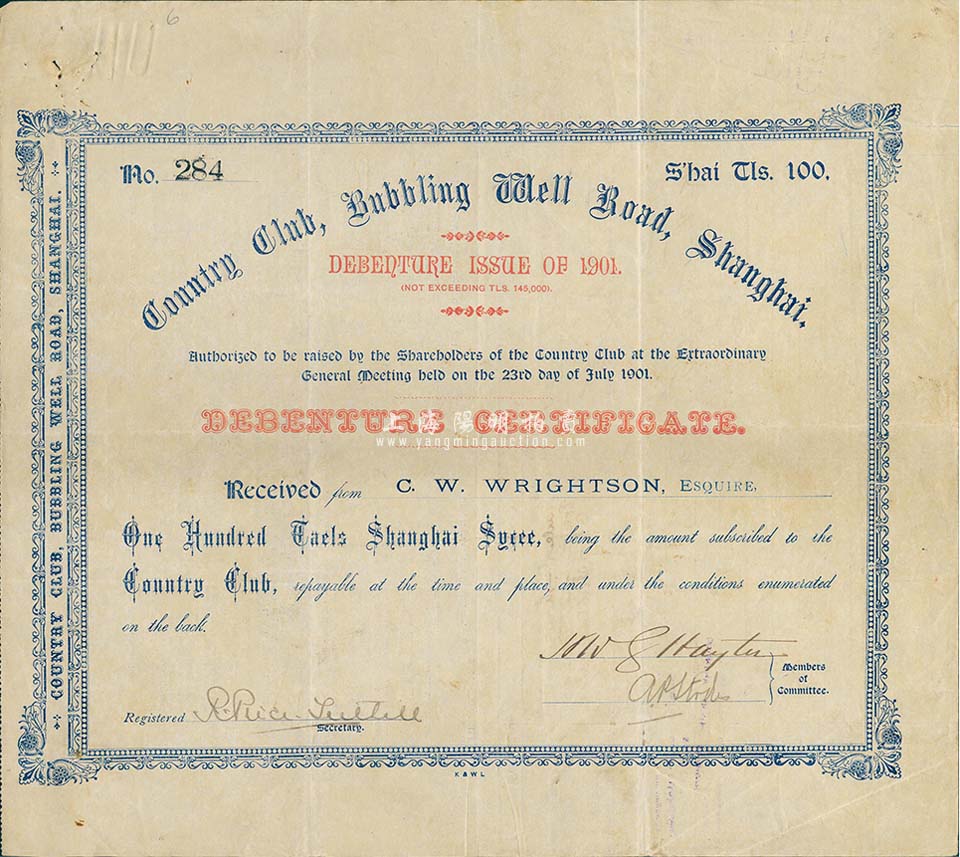 6
No. 284
S'hai Tls. 100.
Country Club, Bubbling Well Road, Shanghai.
DEBENTURE ISSUE OF 1901.
(NOT EXCEEDING TLS. 145,000).
Authorized to be raised by the Shareholders of the Country Club at the Extraordinary
General Meeting held on the 23rd day of July 1901.
DEBENTURE CERTIFICATE.
上海陽明拍賣
www.yangmingauction.com
Received from C. W. WRIGHTSON, ESQUIRE,
One Hundred Taels Shanghai Sycee, being the amount subscribed to the
Country Club, repayable at the time and place, and under the conditions enumerated
on the back.
Hayter
Members
of
Committee.
Registered
Secretary.
K & W L
COUNTRY CLUB, BUBBLING WELL ROAD, SHANGHAI.